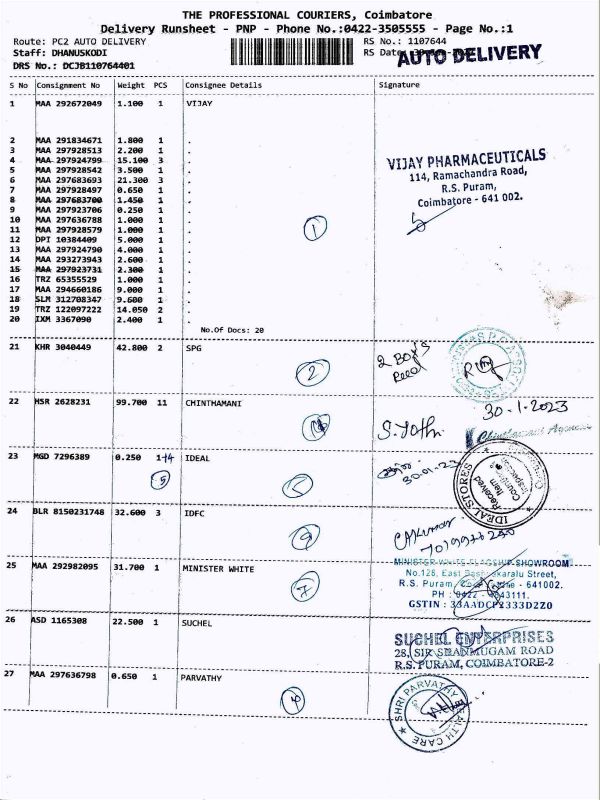 THE PROFESSIONAL COURIERS, Coimbatore
Delivery Runsheet - PNP - Phone No.:0422-3505555 - Page No.:1
Route: PC2 AUTO DELIVERY RS No.: 1107644
Staff: DHANUSKODI RS Date:
AUTO DELIVERY
DRS No.: DCJB110764401
S No Consignment No Weight PCS Consignee Details Signature
1 MAA 292672049 1.100 1 VIJAY
2 MAA 291834671 1.800 1 .
3 MAA 297928513 2.200 1 .
4 MAA 297924799 15.100 3 .
5 MAA 297928542 3.500 1 .
6 MAA 297683693 21.300 3 .
7 MAA 297928497 0.650 1 .
8 MAA 297683700 1.450 1 .
9 MAA 297923706 0.250 1 .
10 MAA 297636788 1.000 1 .
11 MAA 297928579 1.000 1 .
12 DPI 10384409 5.000 1 .
13 MAA 297924790 4.000 1 .
14 MAA 293273943 2.600 1 .
15 MAA 297923731 2.300 1 .
16 TRZ 65355529 1.000 1 .
17 MAA 294660186 9.000 1 .
18 SLM 312708347 9.600 1 .
19 TRZ 122097222 14.050 2 .
20 IXM 3367090 2.400 1 .
VIJAY PHARMACEUTICALS
114, Ramachandra Road,
R.S. Puram,
Coimbatore - 641 002.
1
No.Of Docs: 20
21 KHR 3040449 42.800 2 SPG
2
2 Box's
Recd
22 HSR 2628231 99.700 11 CHINTHAMANI
30-1-2023
S. Jothi
Chinthamani Agencies
23 MGD 7296389 0.250 1+4 IDEAL
5
30-01-23
IDEAL STORES
Received
Item
24 BLR 8150231748 32.600 3 IDFC
25 MAA 292982095 31.700 1 MINISTER WHITE
7
MINISTER WHITE FLAGSHIP SHOWROOM
No.128, East
R.S. Puram, - 641002.
GSTIN : 33AADCP2333D2Z0
26 ASD 1165308 22.500 1 SUCHEL
SUCHEL ENTERPRISES
28, SIR SHANMUGAM ROAD
R.S. PURAM, COIMBATORE-2
27 MAA 297636798 0.650 1 PARVATHY
SHRI PARVATHY HEALTH CARE